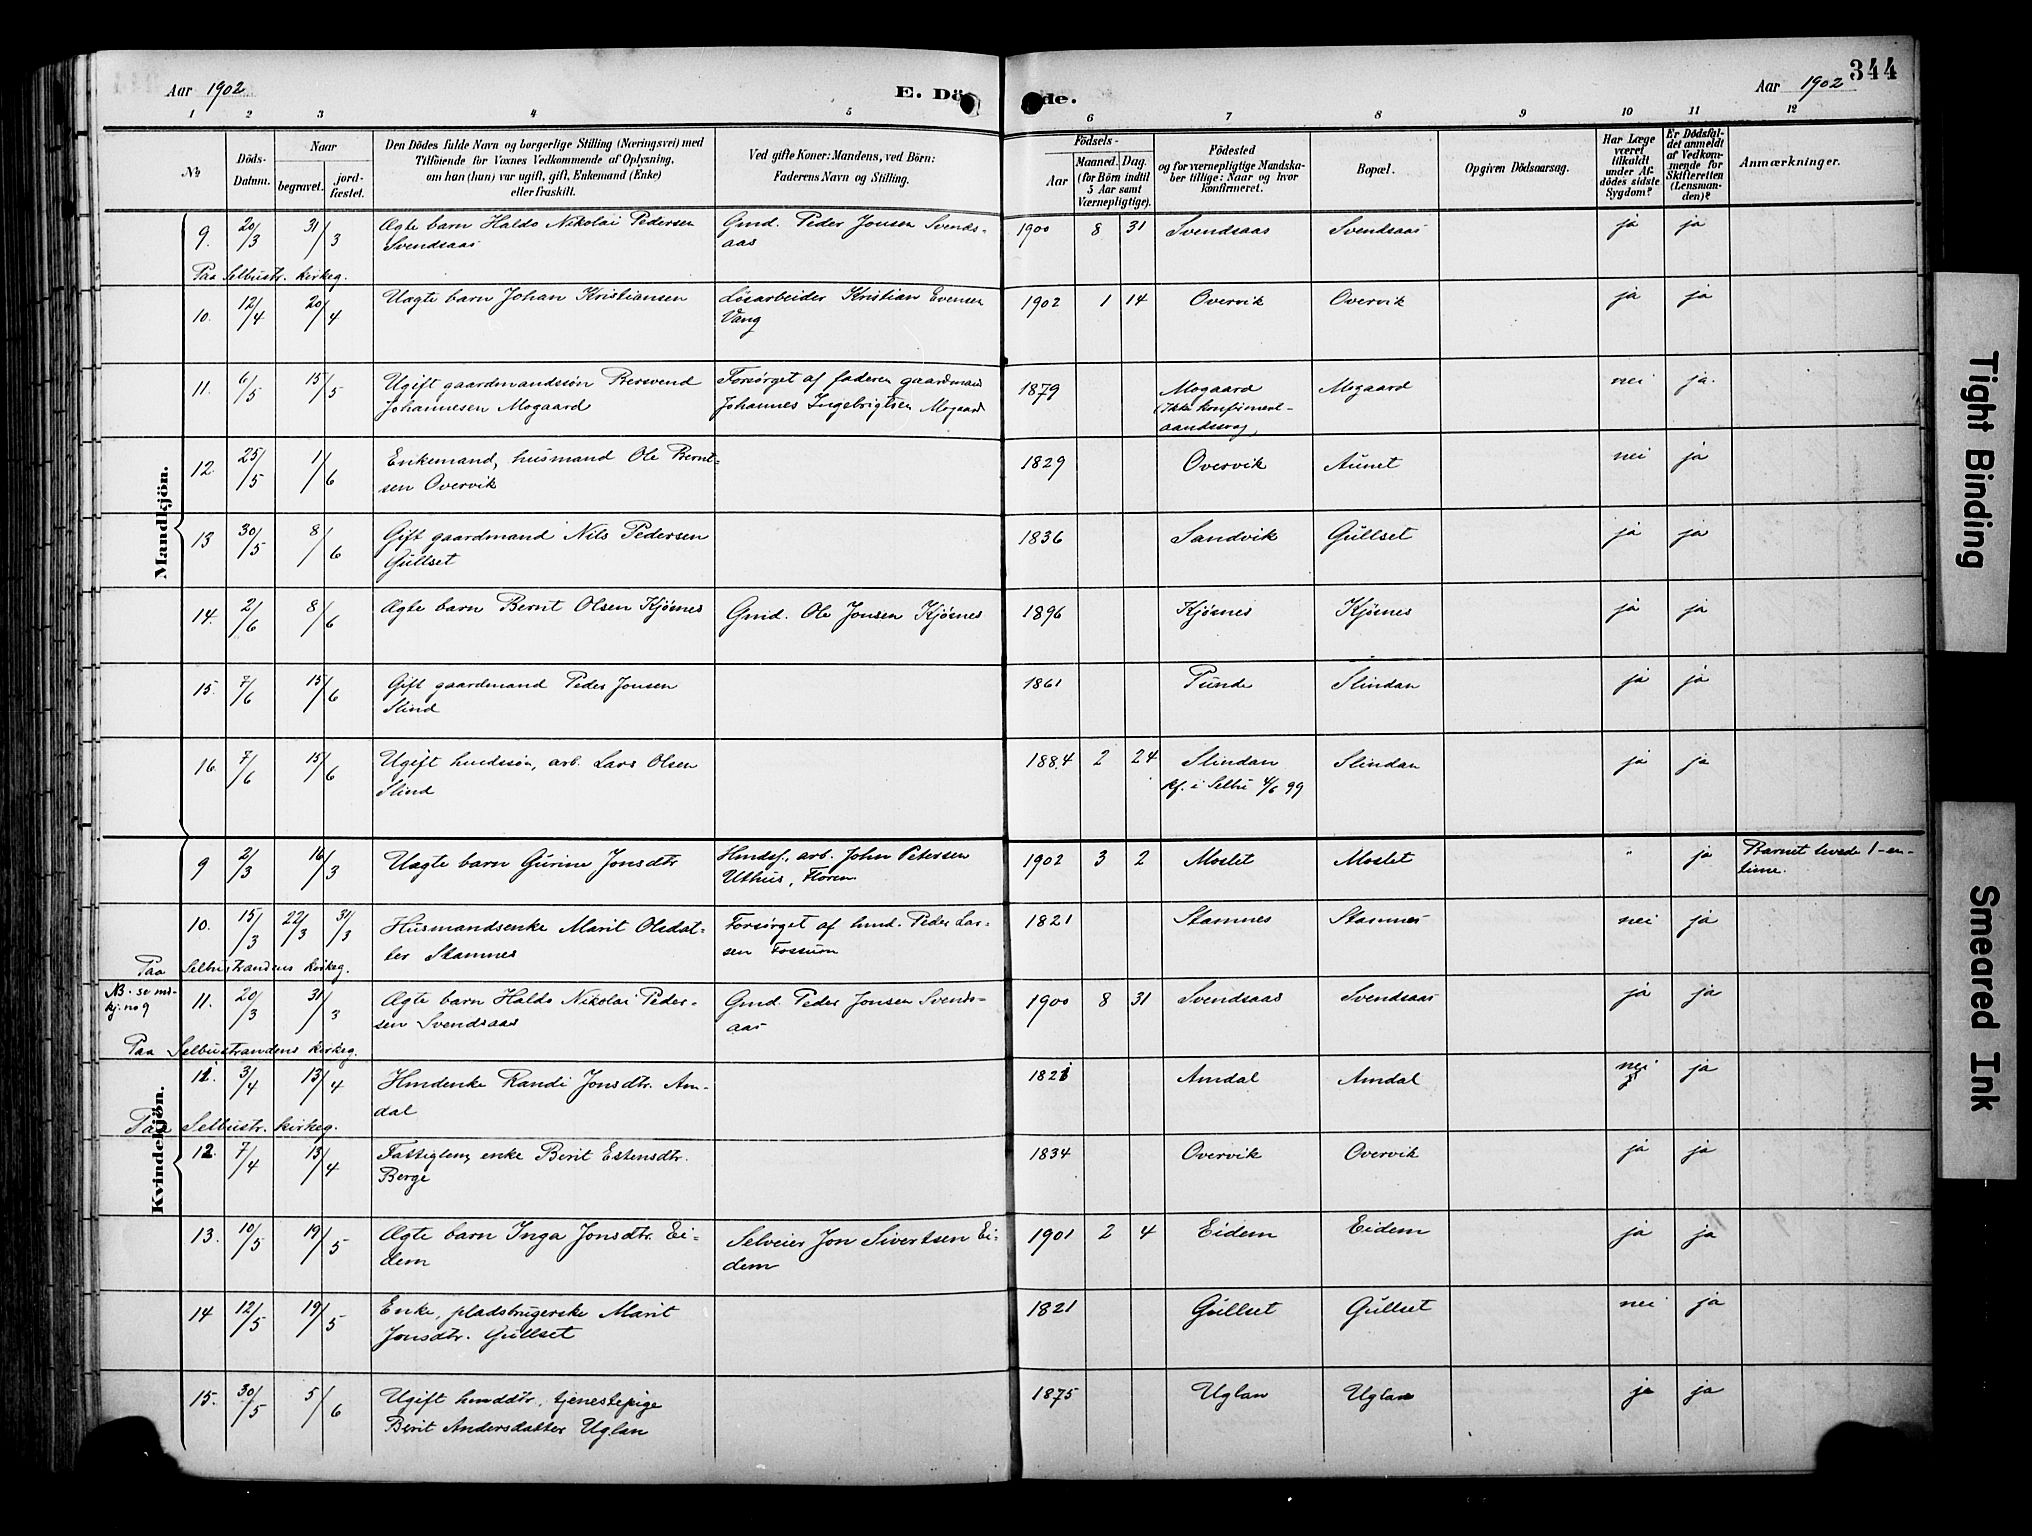 Aar 1902 E. Dö de. Aar 1902 344
1 2 3 4 5 6 7 8 9 10 11 12
No
Döds-Datum.
Naar
begravet.
jord-fæstet.
Den Dödes fulde Navn og borgerlige Stilling (Næringsvei) med
Tilföiende for Voxnes Vedkommende af Oplysning,
om han (hun) var ugift, gift, Enkemand (Enke)
eller fraskilt.
Ved gifte Koner: Mandens, ved Börn:
Faderens Navn og Stilling.
Födsels-
Aar
Maaned. Dag.
(for Börn indtil
5 Aar samt
Værnepligtige).
Födested
og for værnepligtige Mandska-
ber tillige: Naar og hvor
Konfirmeret.
Bopæl.
Opgiven Dödsaarsag.
Har Læge
været
tilkaldt
under Af-
dödes sidste
Sygdom?
Er Dödsfal-
det anmeldt
af Vedkom-
mende for
Skifteretten
(Lensman-
den)?
Anmærkninger.
Mandkjön.
9. 20/3 31/3 Ægte barn Haldo Nikolai Pedersen Gmd. Peder Jonsen Svends- 1900 8 31 Svendsaas Svendsaas ja ja
Svendsaas aas
Paa Selbustr. kirkeg.
10. 12/4 20/4 Uægte barn Johan Kristiansen Løsarbeider Kristian Evensen 1902 1 14 Overvik Overvik ja ja
Vang
11. 6/5 15/5 Ugift gaardmandssøn Bersvend Forsørget af faderen gaardmand 1879 Mogaard Mogaard nei ja.
Johannesen Mogaard Johannes Ingebrigtsen Mogaard (Ikke konfirmeret-
aandssvag)
12. 25/5 1/6 Enkemand, husmand Ole Bernt- 1829 Overvik Aunet nei ja
sen Overvik
13 30/5 8/6 Gift gaardmand Nils Pedersen 1836 Sandvik Gullset ja ja
Gullset
14. 2/6 8/6 Ægte barn Bernt Olsen Kjøsnes Gmd. Ole Jonsen Kjøsnes 1896 Kjøsnes Kjøsnes ja ja
15. 7/6 15/6 Gift gaardmand Peder Jonsen 1861 Tunde Slindan ja ja
Slind
16. 7/6 15/6 Ugift hmdssøn, arb. Lars Olsen 1884 2 24 Slindan Slindan ja ja
Slind kf. i Selbu 4/6 99
Kvindekjön.
9 2/3 16/3 Uægte barn Gurine Jonsdtr Hmdsf., arb. John Petersen 1902 3 2 Moslet Moslet " ja Barnet levede 1-en-
Uthus, Floren time.
10. 15/3 22/3 31/3 Husmandsenke Marit Olsdat- Forsørget af hmd. Peder Lar- 1821 Stamnes Stamnes nei ja
ter Stamnes sen Fossum
Paa Selbustrandens kirkeg.
NB. se m-
kj. no 9
11. 20/3 31/3 Ægte barn Haldo Nikolai Peder- Gmd. Peder Jonsen Svends- 1900 8 31 Svendsaas Svendsaas ja ja
sen Svendsaas aas
Paa Selbustrandens kirkeg.
11. 3/4 13/4 Hmdenke Randi Jonsdtr. Am- 1821 Amdal Amdal nei ja
dal
Paa Selbustr. kirkeg.
12. 7/4 13/4 Fattiglem, enke Berit Estensdtr. 1834 Overvik Overvik ja ja
Berge
13. 10/5 19/5 Ægte barn Inga Jonsdtr. Ei- Selveier Jon Sivertsen Ei- 1901 2 4 Eidem Eidem ja ja
dem dem
14 12/5 19/5 Enke, pladsbrugerske Marit 1821 Gullset Gullset nei ja
Jonsdtr. Gullset
15. 30/5 5/6 Ugift hmddtr., tjenestepige 1875 Uglan Uglan ja ja
Berit Andersdatter Uglan
Tight Binding
Smeared Ink